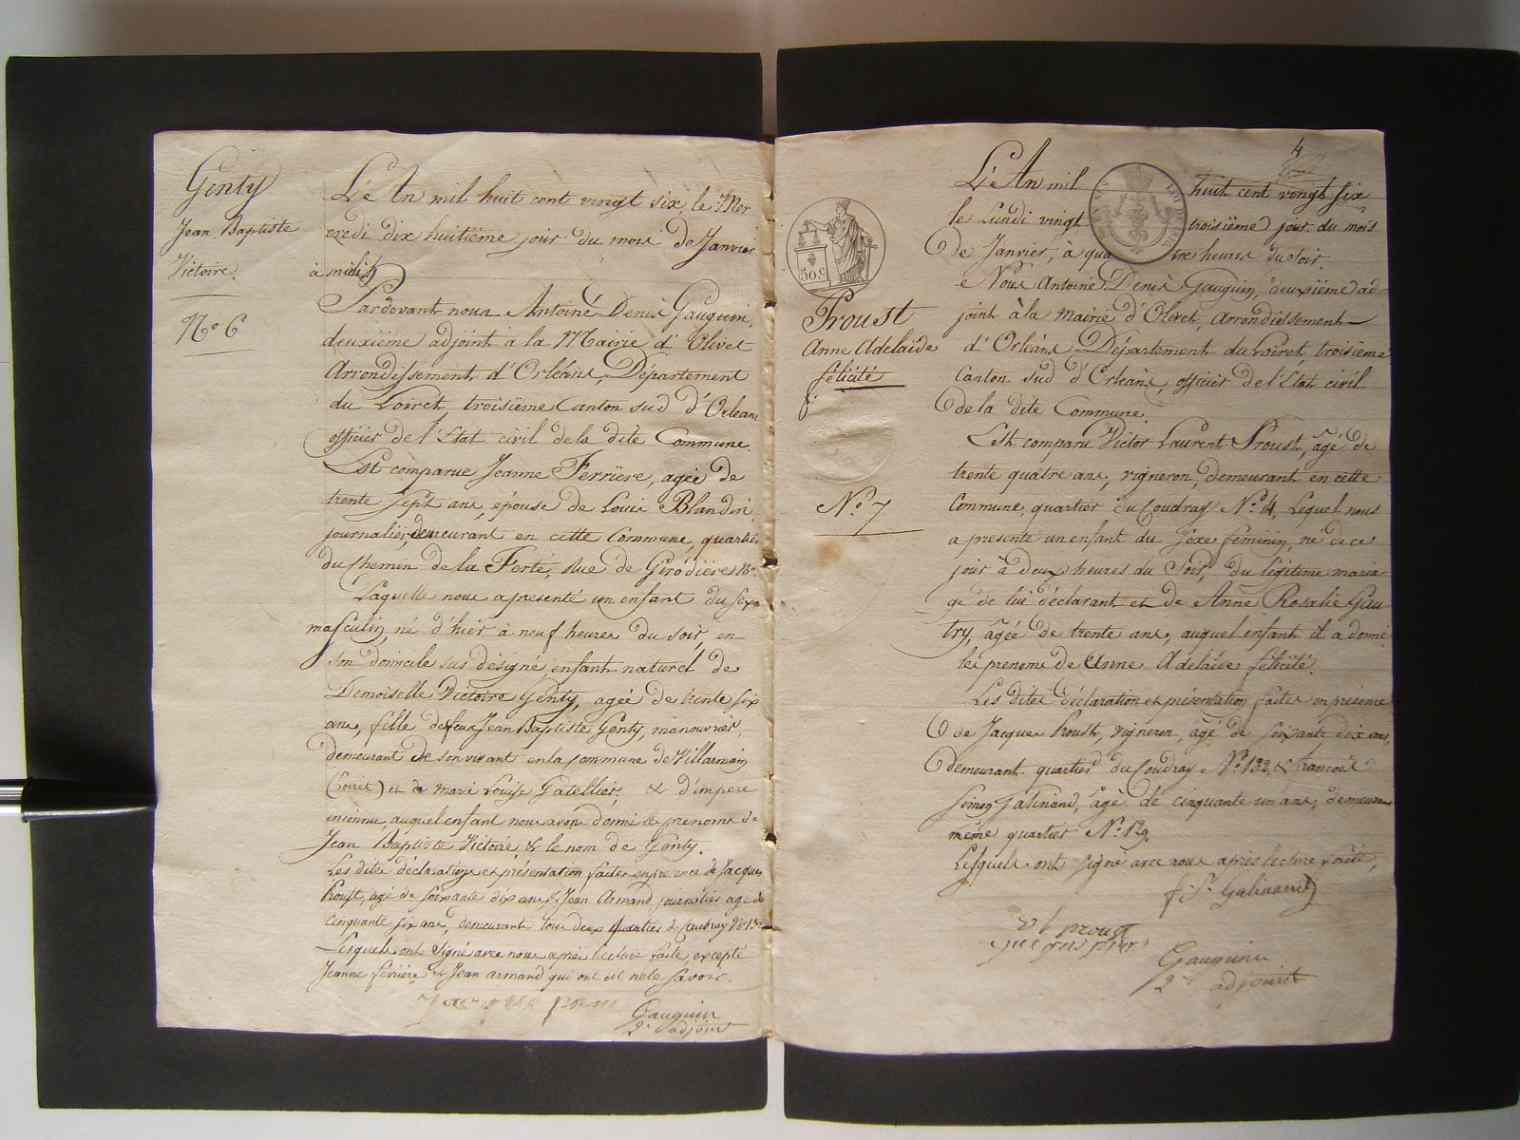 Genty
Jean Baptiste
Victoire.
N.o 6
L'An mil huit cent vingt six, le Mer
credi dix huitième jour du mois de Janvier
à midi,
Pardevant nous Antoine Denis Gauguin,
deuxième adjoint à la Mairie d'Olivet
Arrondissement d'Orléans, Département
du Loiret, troisième Canton sud d'Orléans
officier de l'Etat civil de la dite Commune.
Est comparue Jeanne Ferrière, agée de
trente sept ans, épouse de Louis Blandin
journalier, demeurant en cette Commune, quartier
du Chemin de la Ferté, rue de Girodières
Laquelle nous a présenté un enfant du sexe
masculin, né d'hier à neuf heures du soir, en
son domicile sus désigné, enfant naturel de
Demoiselle Victoire Genty, agée de trente six
ans, fille de feu Jean Baptiste Genty, manouvrier,
demeurant de son vivant en la commune de Villamain
(Loiret) et de Marie Louise Gatellier, & d'un père
inconnu, auquel enfant nous avons donné les prenoms de
Jean Baptiste Victoire, & le nom de Genty.
Les dites déclaration et présentation faites en présence de Jacques
Proust, agé de soixante dix ans & Jean Armand journalier agé de
cinquante six ans, demeurant tous deux quartier du Coudray
Lesquels ont signé avec nous après lecture faite, excepté
Jeanne ferrière et Jean armand qui ont dit ne le savoir.
Gauguin
2e adjoint
4
50 c
Proust
Anne Adelaide
félicité
N.o 7
L'An mil huit cent vingt six
le Lundi vingt troisième jour du mois
de Janvier, à quatre heures du soir.
Nous Antoine Denis Gauguin, deuxième ad-
joint à la Mairie d'Olivet, Arrondissement
d'Orléans, Département du Loiret, troisième
Canton sud d'Orléans, officier de l'Etat civil
de la dite Commune.
Est comparu Victor Laurent Proust, âgé de
trente quatre ans, vigneron, demeurant en cette
Commune, quartier du Coudray N.o 4, Lequel nous
a présenté un enfant du sexe féminin, né de ce
jour à deux heures du Soir, du légitime maria-
ge de lui déclarant et de Anne Rosalie Gau
try, âgée de trente ans, auquel enfant il a donné
les prenoms de Anne Adelaide félicité.
Les dites déclaration et présentation faites en présence
de Jacques Proust, vigneron, âgé de soixante dix ans,
demeurant quartier du Coudray N.o 132, & francois
Simon Galinand, âgé de cinquante un ans, demeurant
même quartier N.o 129
Lesquels ont signé avec nous après lecture faite,
f. S. Galinand
v l proust
Gauguin
2e adjoint